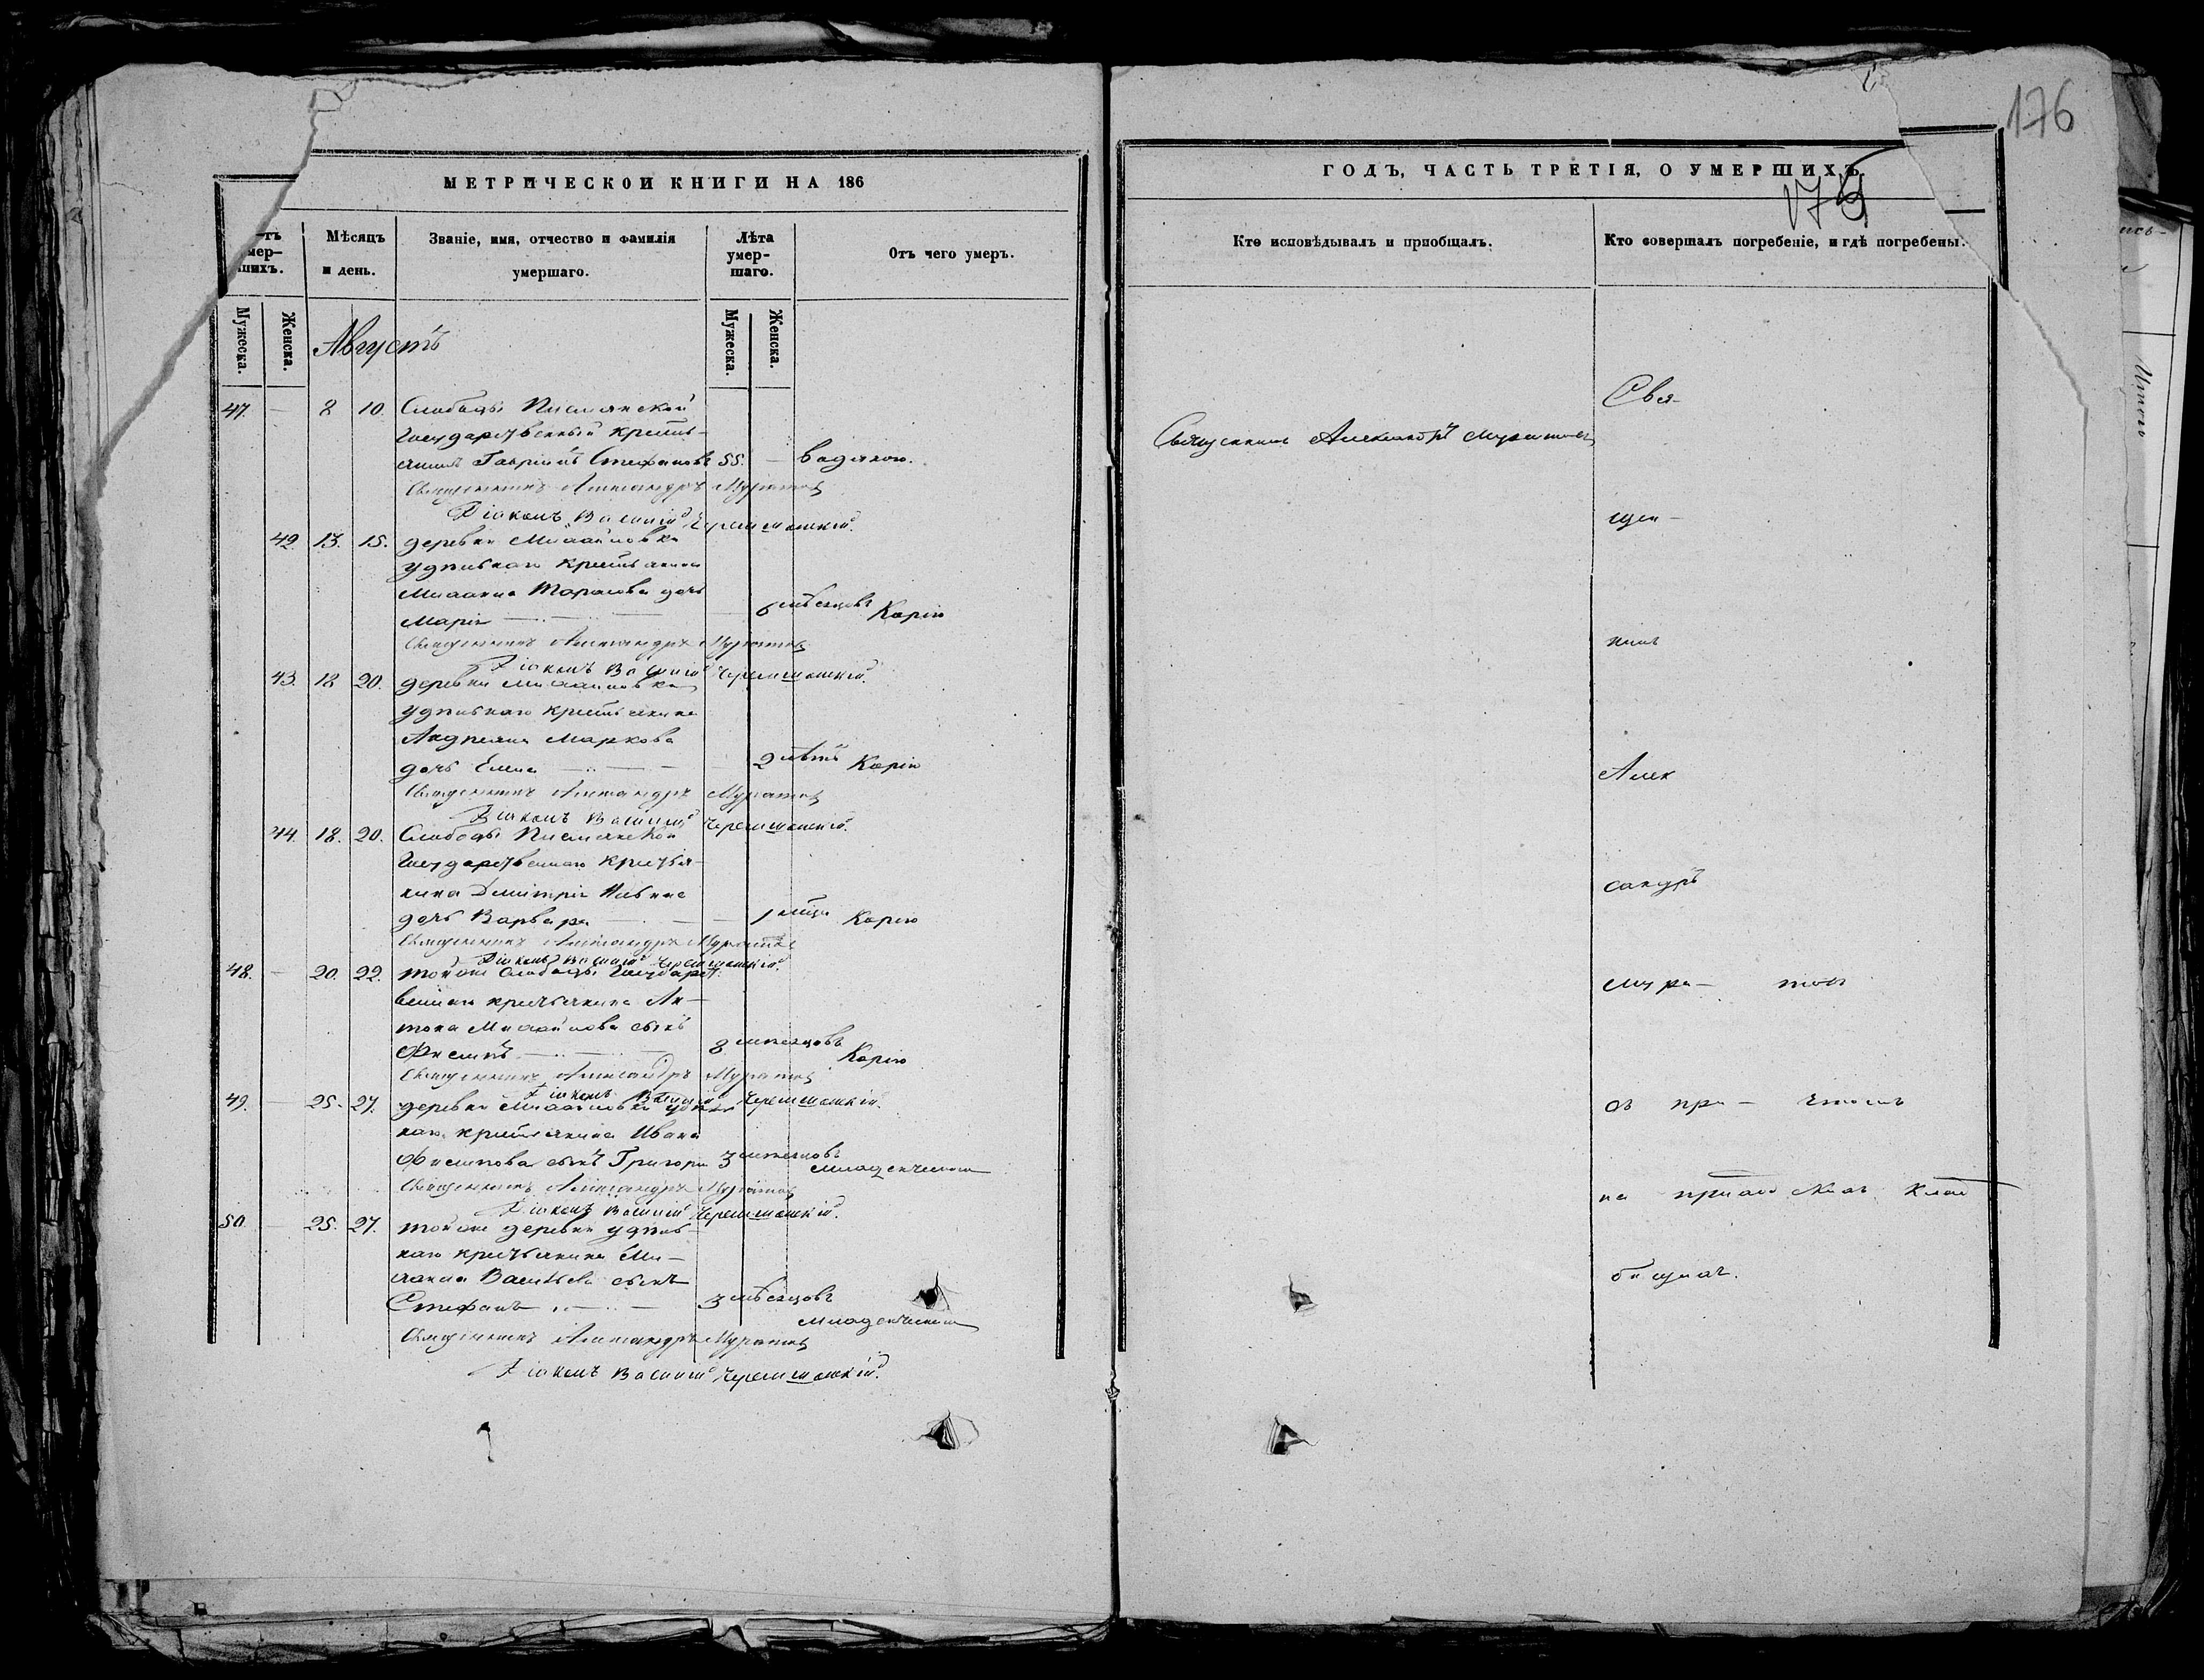 176
МЕТРИЧЕСКОЙ КНИГИ НА 186
ГОДЪ, ЧАСТЬ ТРЕТІЯ, О УМЕРШИХЪ.
Мѣсяцъ и день.
Званіе, имя, отчество и фамилія умершаго.
Лѣта умер-шаго.
Отъ чего умеръ.
Мужеска.
Женска.
Мужеска.
Женска.
Августъ
47. — 8 10. Слободы Писмянской
Государственный кресть-
янинъ Гавріилъ Стефановъ 55. — водяною.
Священникъ Александръ Муратовъ
Діаконъ Василій Черемшанскій.
42. 13. 15. деревни Михайловки
удѣльнаго крестьянина
Михаила Тарасова дочь
Марія — 6 мѣсяцовъ Корію
Священникъ Александръ Муратовъ
Діаконъ Василій Черемшанскій.
43. 18 20. деревни Михайловки
удѣльнаго крестьянина
Андреяна Маркова
дочь Елена — 2 лѣтъ Корію
Священникъ Александръ Муратовъ
Діаконъ Василій Черемшанскій.
44. 18. 20. Слободы Писмянской
Государственнаго крестья-
нина Димитрія Ильина
дочь Варвара — 1 Корію
Священникъ Александръ Муратовъ
Діаконъ Василій Черемшанскій.
48. — 20. 22. тойже Слободы Государст-
веннаго крестьянина Ан-
тона Михайлова сынъ
Филипъ — 8 мѣсяцовъ Корію
Священникъ Александръ Муратовъ
Діаконъ Василій Черемшанскій.
49. — 25. 27. деревни Михайловки удѣль
наго крестьянина Ивана
Филипова сынъ Григорій 3 мѣсяцовъ младенческою
Священникъ Александръ Муратовъ
Діаконъ Василій Черемшанскій.
50. — 25. 27. тойже деревни удѣль-
наго крестьянина Ми-
хаила Васильева сынъ
Стефанъ — 3 мѣсяцовъ
младенческою
Священникъ Александръ Муратовъ
Діаконъ Василій Черемшанскій.
Кто исповѣдывалъ и пріобщалъ.
Кто совершалъ погребеніе, и гдѣ погребены.
Священникъ Александръ Муратовъ
Свя-
щен-
никъ
Алек
сандръ
Мура- товъ
съ при- чтомъ
на приходскомъ клад
бищахъ.